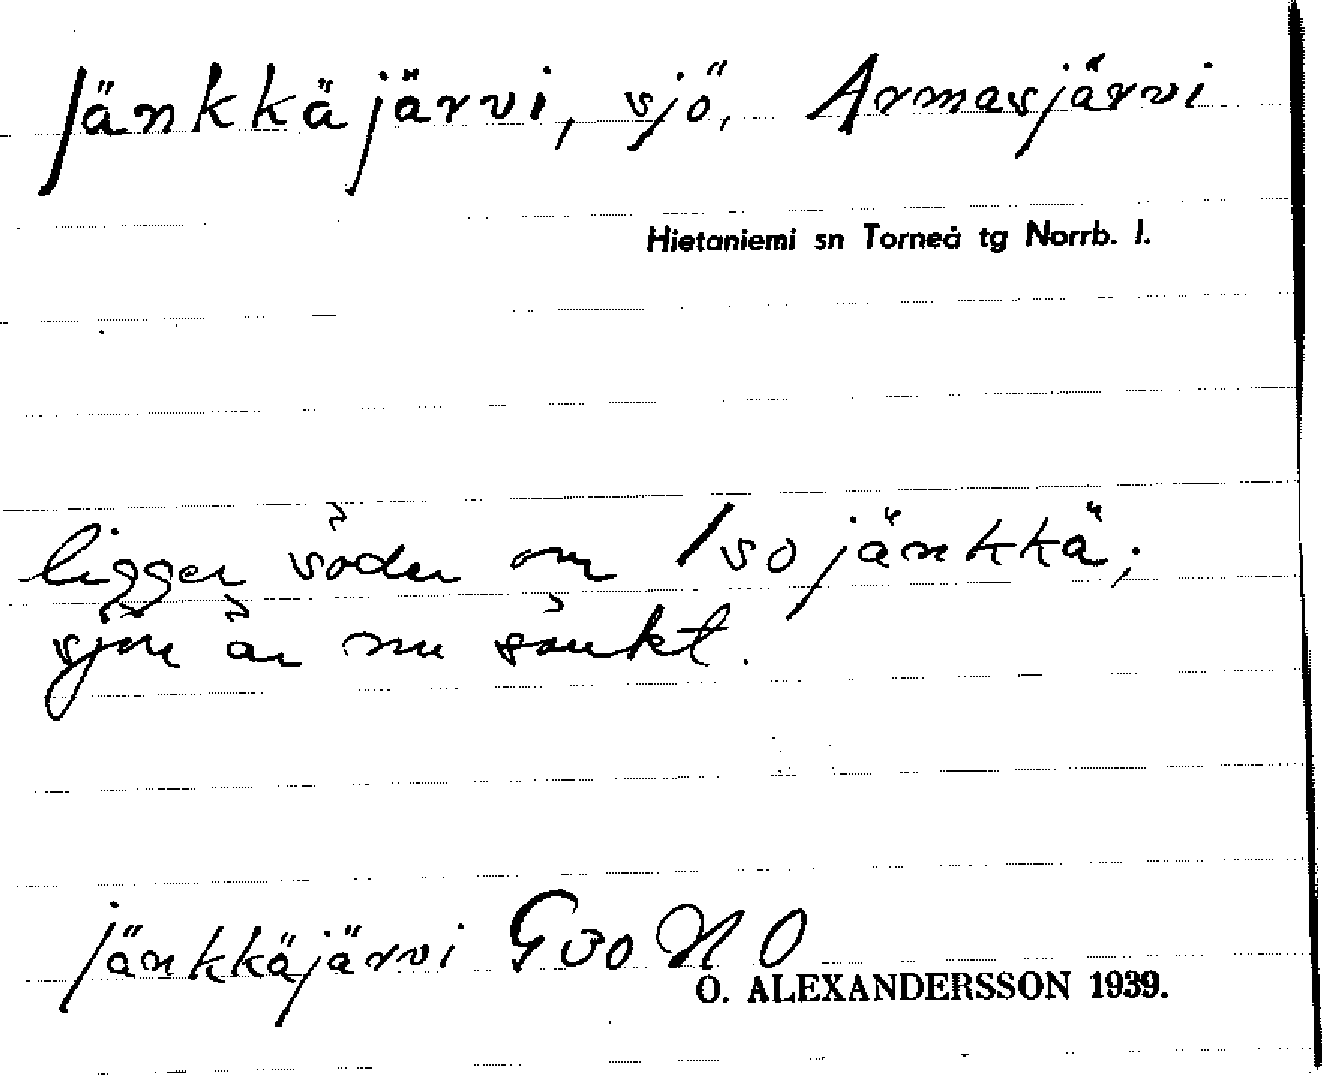 Jänkkäjärvi, sjö, Armasjärvi
Hietaniemi sn Torneå tg Norrb. l.
ligger söder om Isojänkkä;
sjön är nu sänkt.
jänkkäjärvi Gvo N O
O. ALEXANDERSSON 1939.